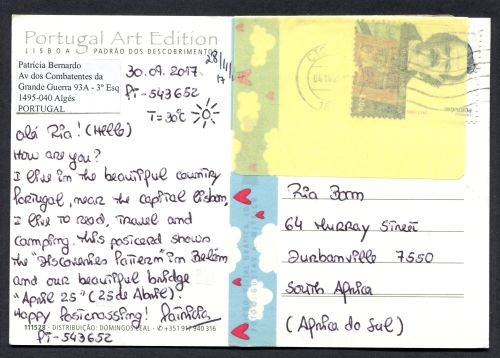 Portugal Art Edition
LISBOA PADRÃO DOS DESCOBRIMENTOS
Patrícia Bernardo
Av dos Combatentes da
Grande Guerra 93A - 3º Esq
1495-040 Algés
PORTUGAL
30.09.2017
28/11/
17
PT-543652
T=30°C
Olá Ria! (Hello)
How are you?
I live in the beautiful country
Portugal, near the capital Lisbon,
I like to read, travel and
camping. This postcard shows
the "Discoveries Pattern" in Belém
and our beautiful bridge
"April 25" (25 de Abril).
Happy Postcrossing! Patrícia
111528 - DISTRIBUIÇÃO: DOMINGOS LEAL - ✆ +351 917 940 316
PT-543652
Ria Bom
64 Murray Street
Durbanville 7550
South Africa
(África do Sul)